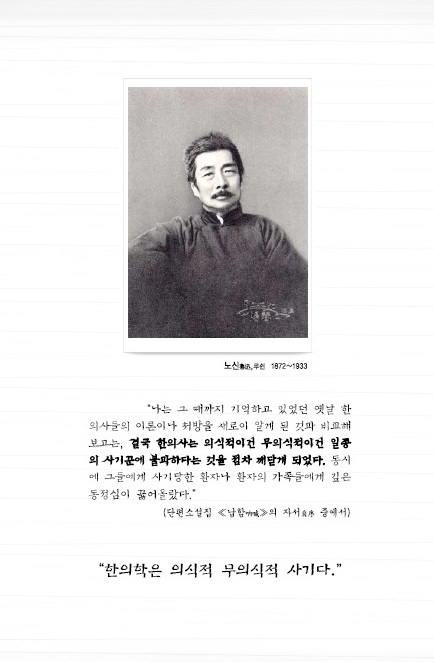 노신魯迅,루쉰 1872~1933
"나는 그 때까지 기억하고 있었던 옛날 한
의사들의 이론이나 처방을 새로이 알게 된 것과 비교해
보고는, 결국 한의사는 의식적이건 무의식적이건 일종
의 사기꾼에 불과하다는 것을 점차 깨닫게 되었다. 동시
에 그들에게 사기당한 환자나 환자의 가족들에게 깊은
동정심이 끓어올랐다."
(단편소설집 《납함吶喊》의 자서自序 중에서)
"한의학은 의식적 무의식적 사기다."